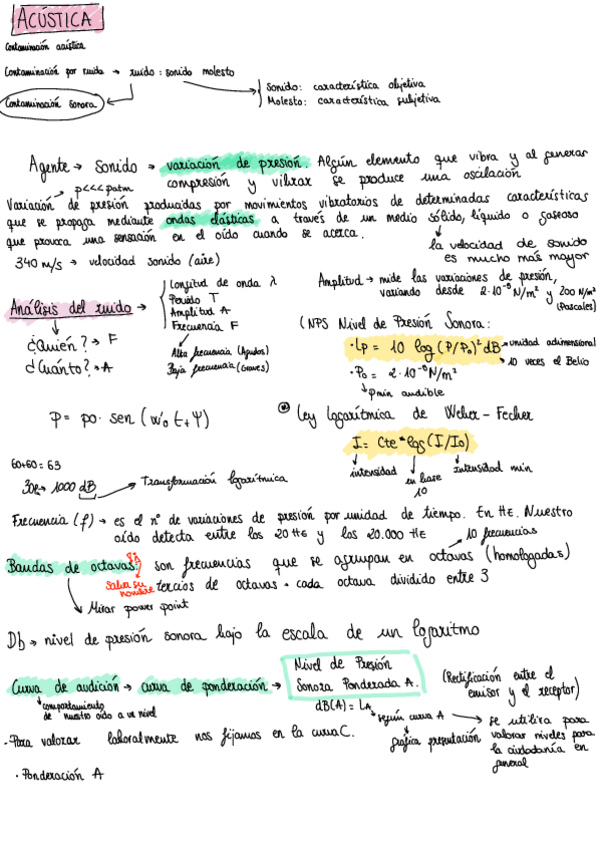 ACÚSTICA
Contaminación acústica
Contaminación por ruido → ruido: sonido molesto
Sonido: característica objetiva
Molesto: característica subjetiva
Contaminación sonora.
Agente → sonido → variación de presión. Algún elemento que vibra y al generar
compresión y vibrar se produce una oscilación
p<<<patm
Variación de presión producidas por movimientos vibratorios de determinadas características
que se propaga mediante ondas elásticas a través de un medio sólido, líquido o gaseoso
que provoca una sensación en el oído cuando se acerca.
la velocidad de sonido
es mucho más mayor
340 m/s → velocidad sonido (aire)
Análisis del ruido →
Longitud de onda λ
Periodo T
Amplitud A
Frecuencia F
Alta frecuencia (Agudos)
Baja frecuencia (Graves)
¿Quién? → F
¿Cuánto? → A
Amplitud → mide las variaciones de presión,
variando desde 2·10⁻⁵ N/m² y 200 N/m²
(Pascales)
(NPS Nivel de Presión Sonora:
· Lp = 10 log (P/P₀)² dB → unidad adimensional
→ 10 veces el Belio
· P₀ = 2·10⁻⁵ N/m²
↳ Pmin audible
P = po · sen (wo t + Ψ)
Ley logarítmica de Weber-Fecher
I = Cte · log (I/I₀)
intensidad
en base
10
intensidad min
60+60 = 63
1000 dB → Transformación logarítmica
Frecuencia (f) → es el nº de variaciones de presión por unidad de tiempo. En Hz. Nuestro
oído detecta entre los 20 Hz y los 20.000 Hz
→ 10 frecuencias
Bandas de octavas: son frecuencias que se agrupan en octavas (homologadas)
Saber su
nombre
tercios de octavas · cada octava dividido entre 3
↳ Mirar power point
Db → nivel de presión sonora bajo la escala de un logaritmo
Curva de audición → curva de ponderación →
Nivel de Presión
Sonora Ponderada A.
(Rectificación entre el
emisor y el receptor)
↳ comportamiento
de nuestro oído a ve nivel
dB(A) = LA
→ según curva A → se utiliza para
valorar niveles para
la ciudadanía en
general
gráfica presentación
· Para valorar laboralmente nos fijamos en la curva C.
· Ponderación A